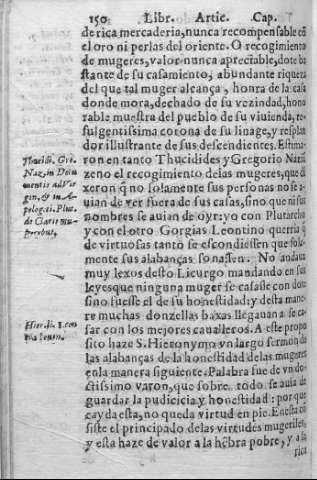 150 Libr. Artic. Cap.
de rica mercaderia, nunca recompensable cõ
el oro ni perlas del oriente. O recogimiento
de mugeres, valor nunca apreciable, dote ba
stante de su casamiento, abundante riqueza
del que tal muger alcança, honra de la casa
donde mora, dechado de su vezindad, hono
rable muestra del pueblo de su viuienda, re-
fulgentissima corona de su linage, y resplan
dor illustrante de sus descendientes. Estima-
ron en tanto Thucidides y Gregorio Nazi
zeno el recogimiento delas mugeres, que di
xeron q̃ no solamente sus personas no se a-
uian de ver fuera de sus casas, sino que ni sus
nombres se auian de oyr: yo con Plutarcho
y con el otro Gorgias Leontino querria q̃
de virtuosas tanto se escondiessen que sola-
mente sus alabanças sonassen. No andaua
muy lexos desto Licurgo mandando en sus
leyes que ninguna muger se casasse con dote
sino fuesse el de su honestidad: y desta mane
re muchas donzellas baxas llegauan a se ca-
sar con los mejores caualleros. A este propo
sito haze S. Hieronymo vn largo sermon de
las alabanças de la honestidad delas mugeres
en la manera siguiente. Palabra fue de vn do-
ctissimo varon, que sobre todo se auia de
guardar la pudicicia y honestidad: por que
cayda esta, no queda virtud en pie. En esta co
siste el principado delas virtudes mugeriles,
y esta haze de valor a la hõbra pobre, y a la
rica
Thucidi. Gre.
Naz. in Docu
mentis ad Vir
gin. & in A-
pologeti. Plut.
de Claris mu-
lieribus.
Hier. li. 1. con